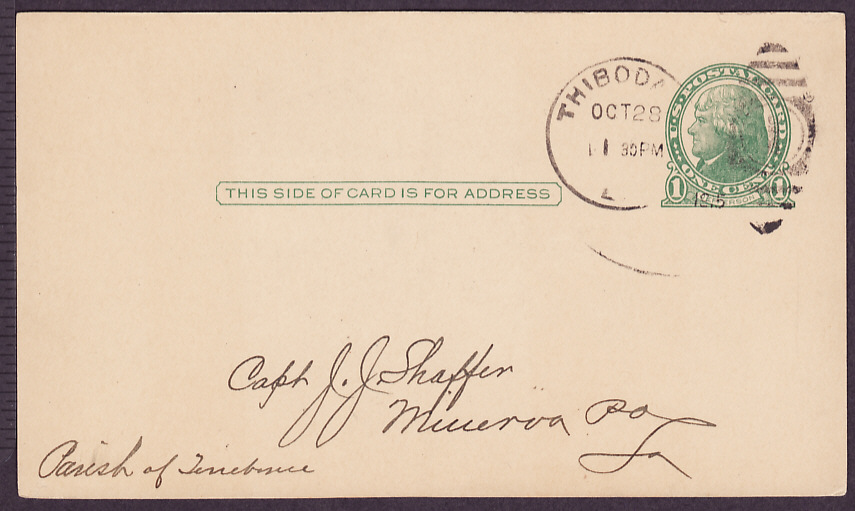 THIBODA
OCT 28
30PM
L
1915
U.S. POSTAL CARD
1 ONE CENT 1
JEFFERSON
THIS SIDE OF CARD IS FOR ADDRESS
Capt J. J. Shaffer
Minerva PO
La
Parish of Terrebonne